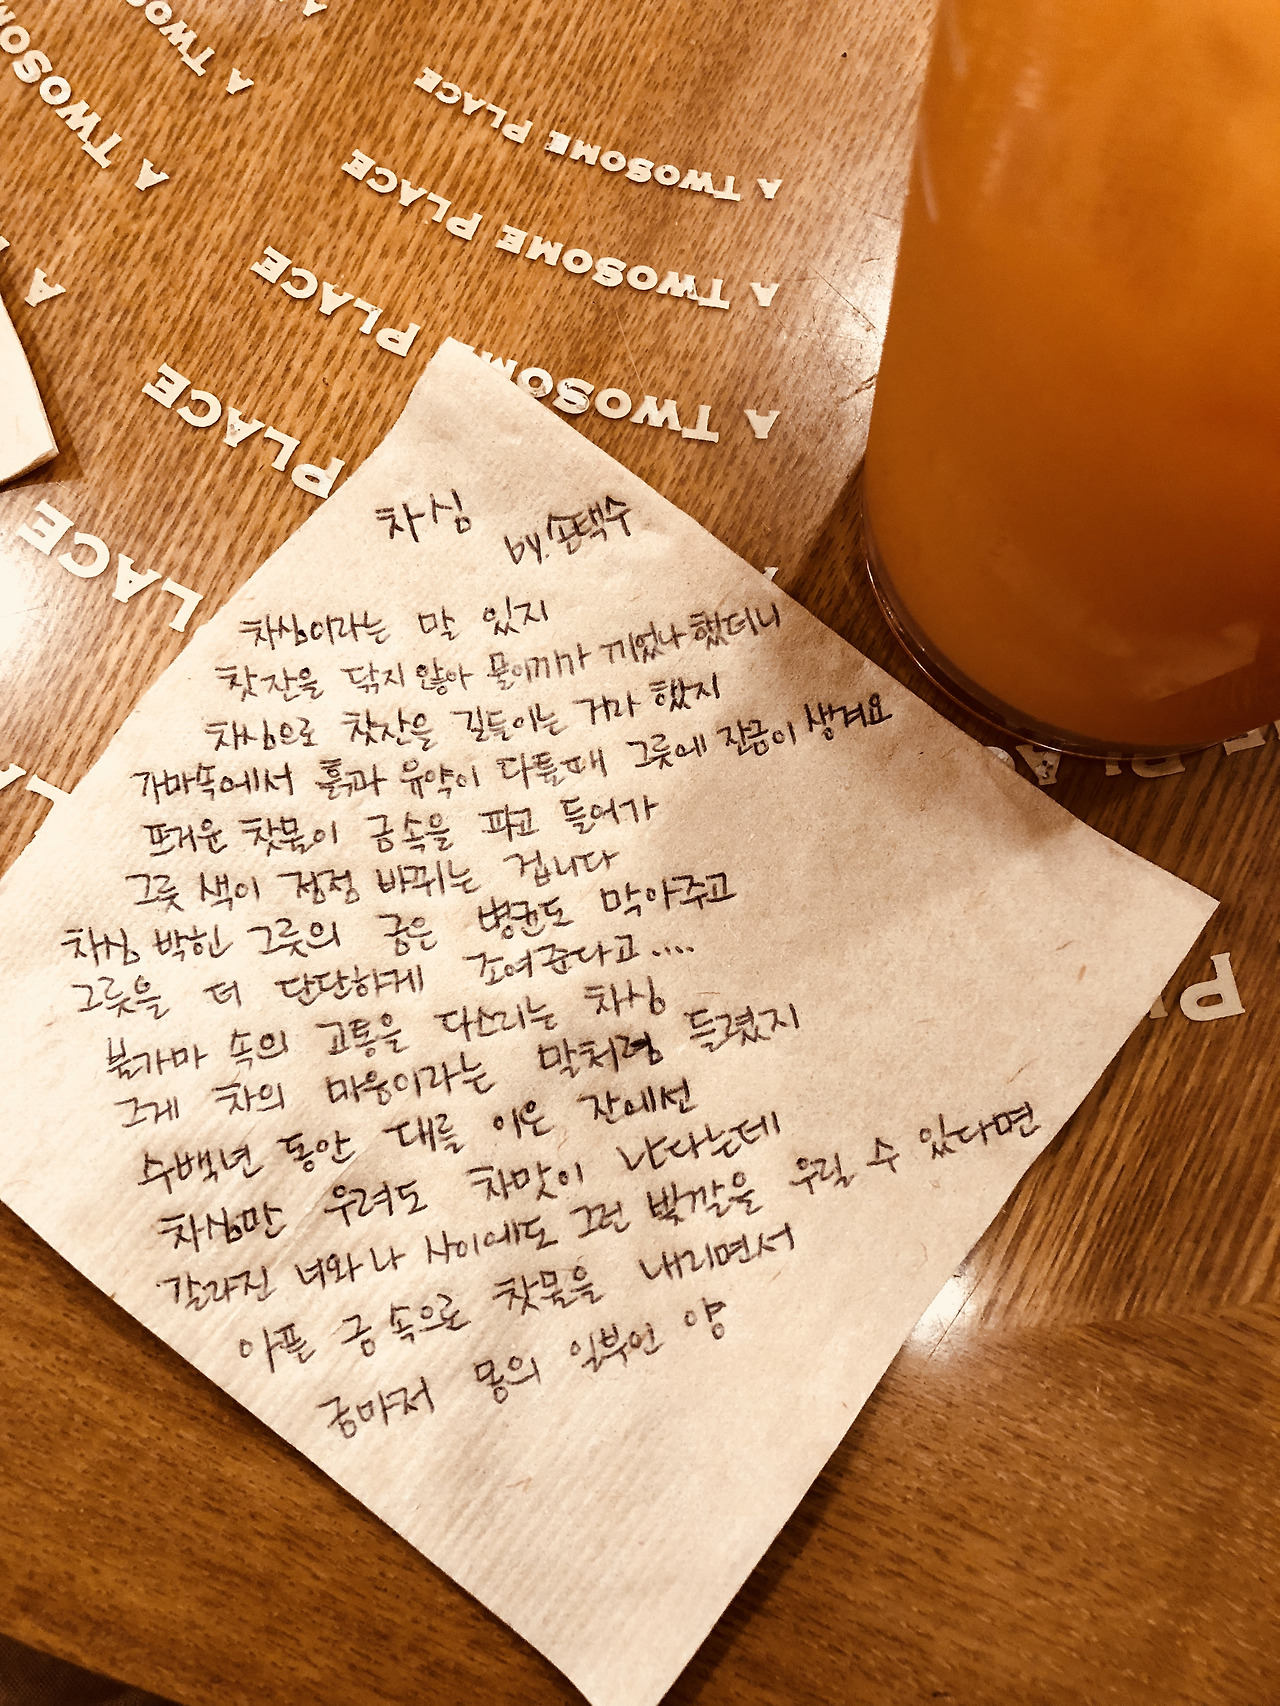 A TWOSOME PLACE
A TWOSOME PLACE
A TWOSOME PLACE
차심
by.손택수
차심이라는 말 있지
찻잔을 닦지 않아 물이끼가 끼었나 했더니
차심으로 찻잔을 길들이는 거라 했지
가마속에서 흙과 유약이 다툴때 그릇에 잔금이 생겨요
뜨거운 찻물이 금속을 파고 들어가
그릇 색이 점점 바뀌는 겁니다
차심 박힌 그릇의 금은 병균도 막아주고
그릇을 더 단단하게 조여준다고....
불가마 속의 고통을 다스리는 차심
그게 차의 마음이라는 말처럼 들렸지
수백년 동안 대를 이은 잔에선
차심만 우려도 차맛이 난다는데
갈라진 너와 나 사이에도 그런 빛깔을 우릴 수 있다면
아픈 금 속으로 찻물을 내리면서
금마저 몸의 일부인 양